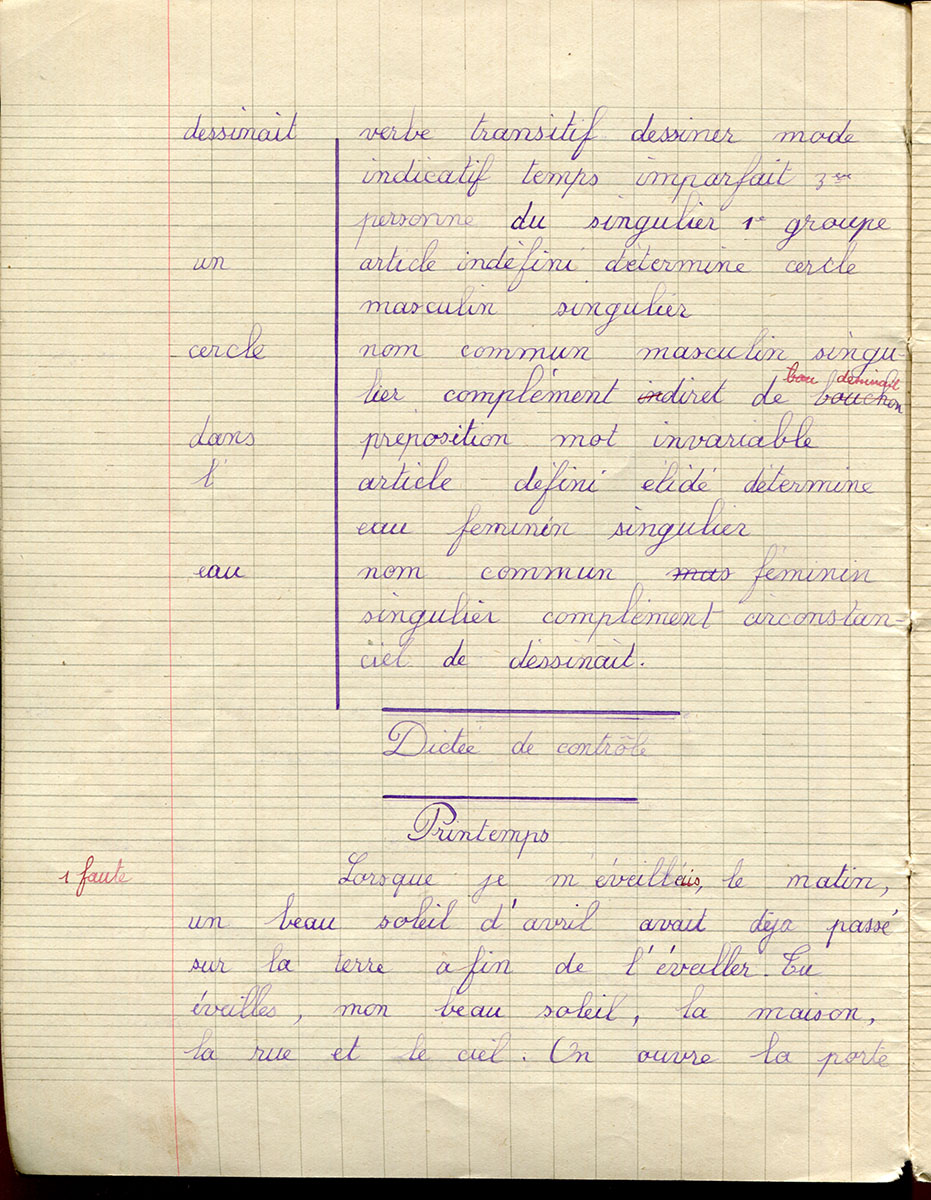 dessinait verbe transitif dessiner mode
indicatif temps imparfait 3ème
personne du singulier 1e groupe
un article indéfini détermine cercle
masculin singulier
cercle nom commun masculin singu-
lier complément indirect de bouchon
dans préposition mot invariable
l' article défini élidé détermine
eau féminin singulier
eau nom commun mas féminin
singulier complément circonstan-
ciel de dessinait.
Dictée de contrôle
Printemps
1 faute Lorsque je m'éveillais, le matin,
un beau soleil d'avril avait déja passé
sur la terre afin de l'éveiller. Tu
éveilles, mon beau soleil, la maison,
la rue et le ciel. On ouvre la porte